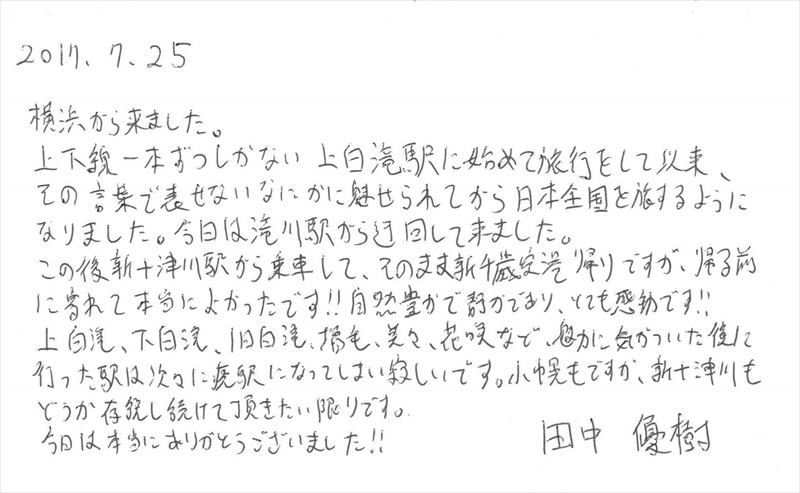 2017.7.25
横浜から来ました。
上下線一本ずつしかない上白滝駅に始めて旅行をして以来、
その言葉で表せないなにかに魅せられてから日本全国を旅するように
なりました。今日は滝川駅から迂回して来ました。
この後新十津川駅から乗車して、そのまま新千歳空港帰りですが、帰る前
に寄れて本当によかったです!!自然豊かで静かであり、とても感動です!!
上白滝、下白滝、旧白滝、増毛、美々、花咲など、魅力に気がついた後に
行った駅は次々に廃駅になってしまい寂しいです。小幌もですが、新十津川も
どうか存続し続けて頂きたい限りです。
今日は本当にありがとうございました!!
田中 優樹